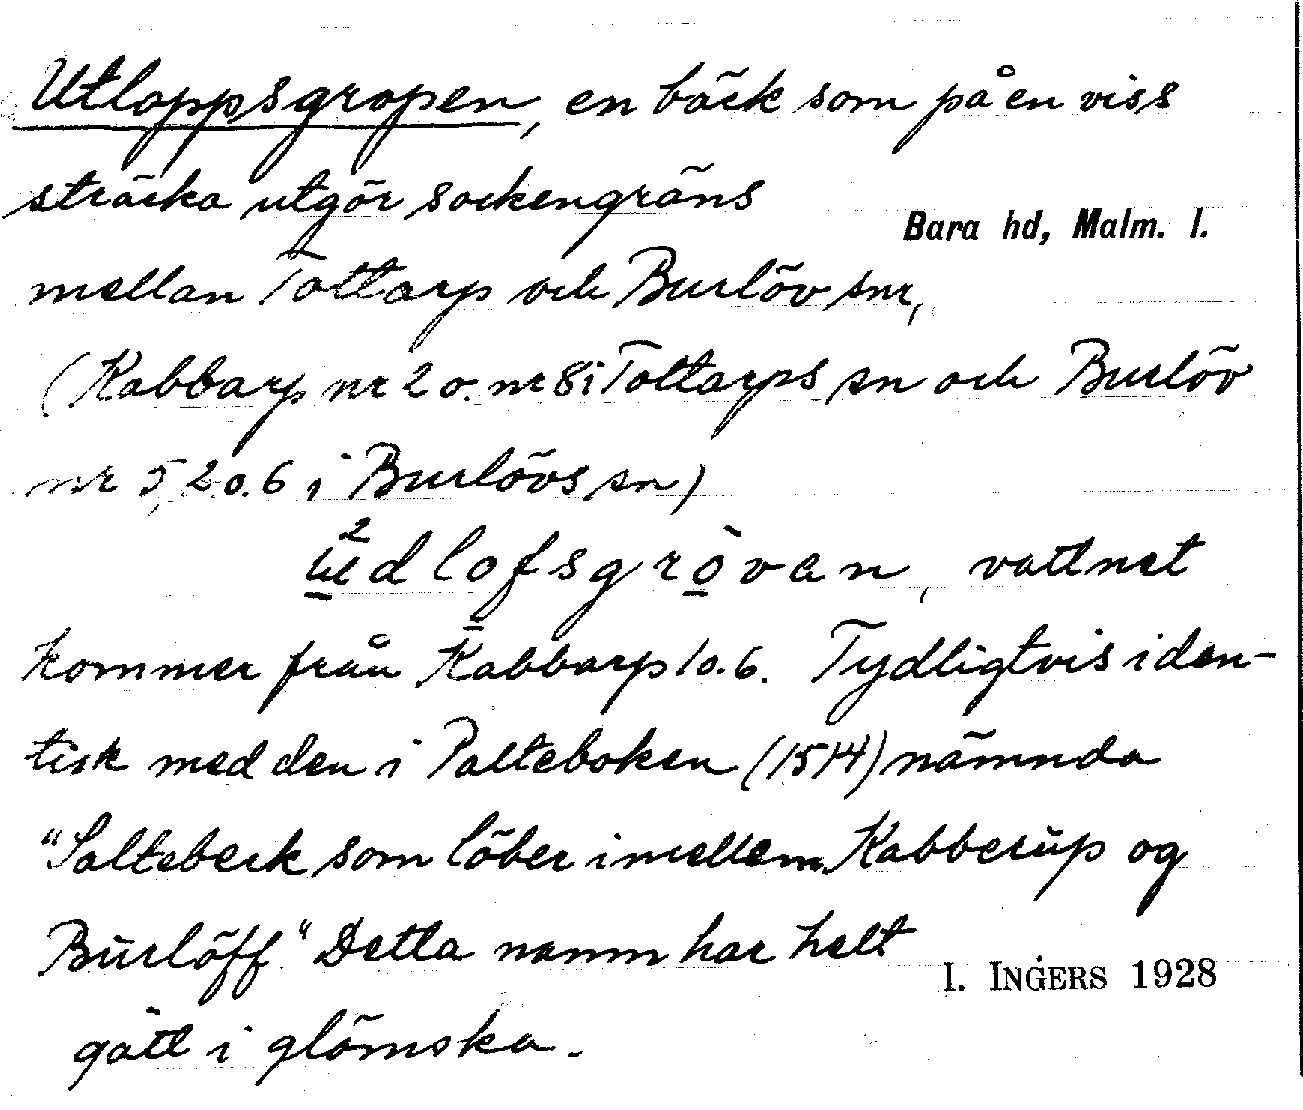 Utloppsgropen, en bäck som på en viss
sträcka utgör sockengräns
Bara hd, Malm. l.
mellan Tottarp och Burlöv snr,
(Kabbarp nr 2 o. nr 8 i Tottarps sn och Burlöv
nr 5, 2 o. 6 i Burlövs sn)
lofsgrövan, vattnet
kommer från Kabbarp 1 o. 6. Tydligtvis iden-
tisk med den i Palteboken (1514) nämnda
"Saltebeck som löber imellem Kabberup og
Burlöff." Detta namn har helt
I. INGERS 1928
gått i glömska.